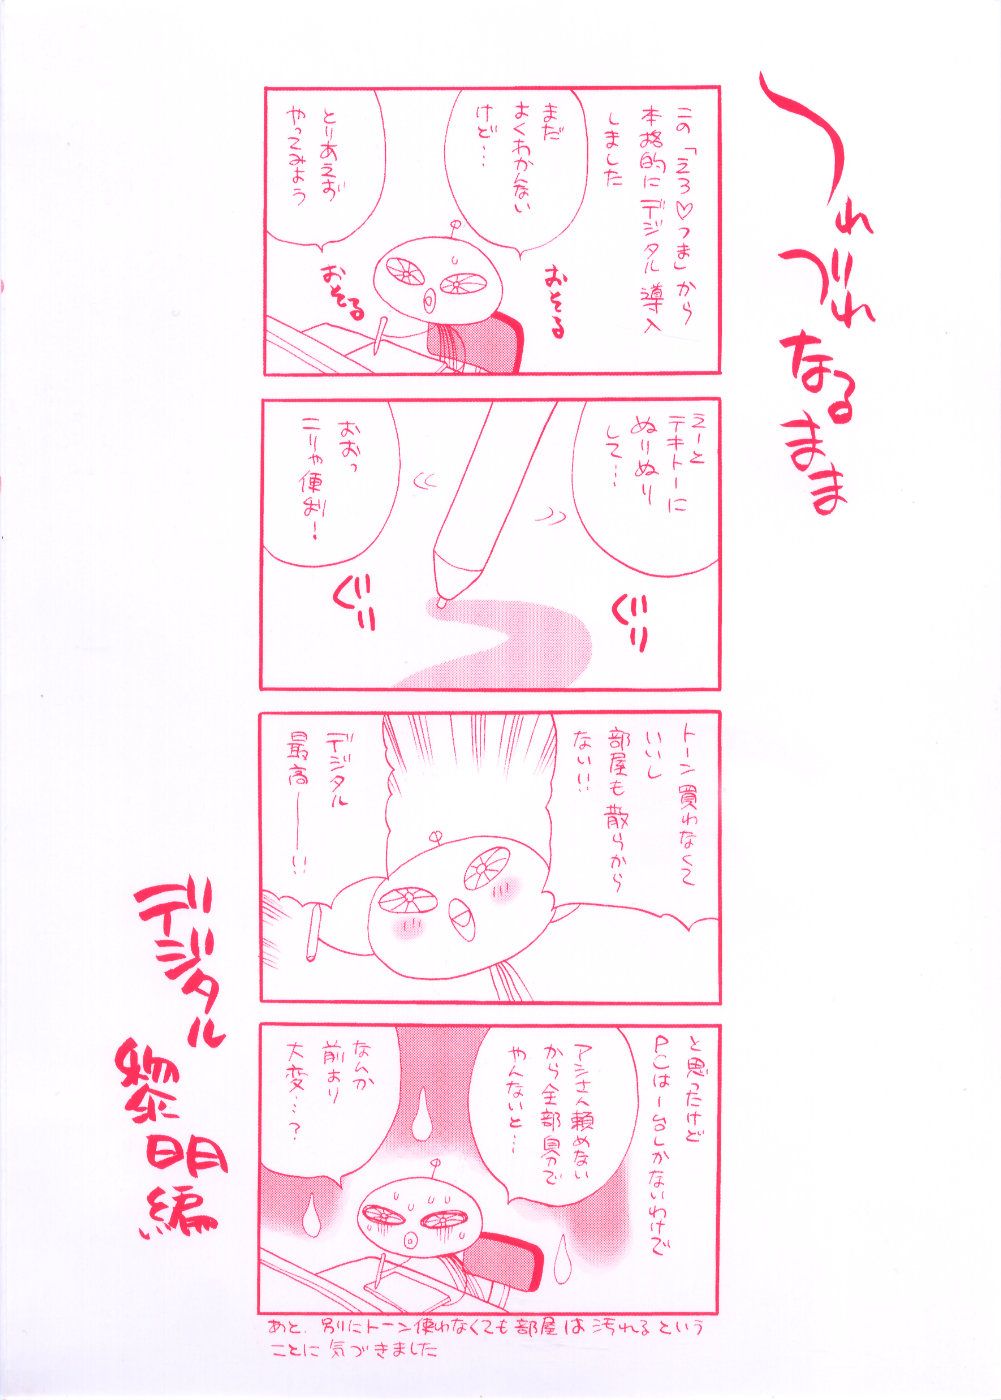 つれづれなるまま
この「えろ♡つま」から
本格的にデジタル導入
しました
まだ
よくわかんない
けど…
とりあえず
やってみよう
おそる
おそる
えーと
テキトーに
ぬりぬり
して…
おおっ
こりゃ便利！
ぐりり
ぐりり
トーン買わなくて
いいし
部屋も散らから
ない!!
デジタル
最高――い
と思ったけど
PCは一台しかないわけで
アシさん頼めない
から全部自分で
やんないと…
なんか
前より
大変…？
あと、別にトーン使わなくても部屋は汚れるという
ことに気づきました
デジタル
黎明編